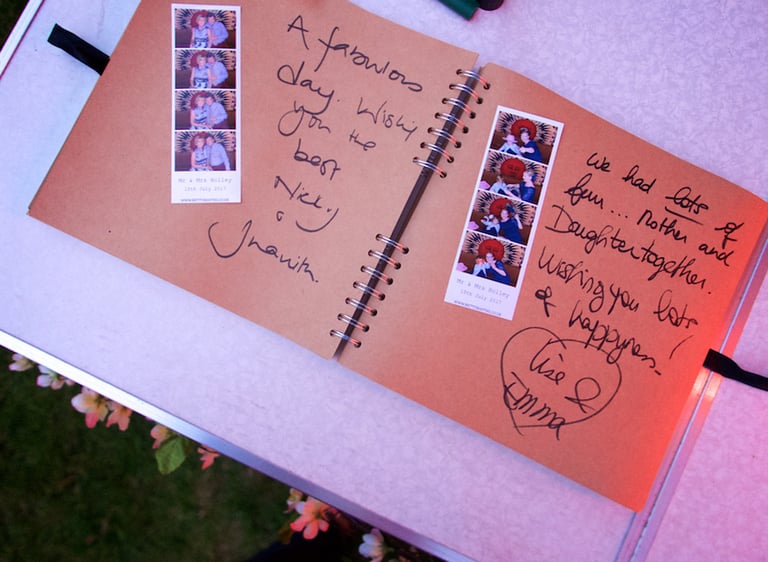 A fabulous
day. Wishing
you the
best
Nicky
&
Mr & Mrs Holley
15th July 2017
we had lots of
fun... Mother and
Daughter together.
Wishing you lots
of happyness!
Lise &
Emma
Mr & Mrs Holley
15th July 2017